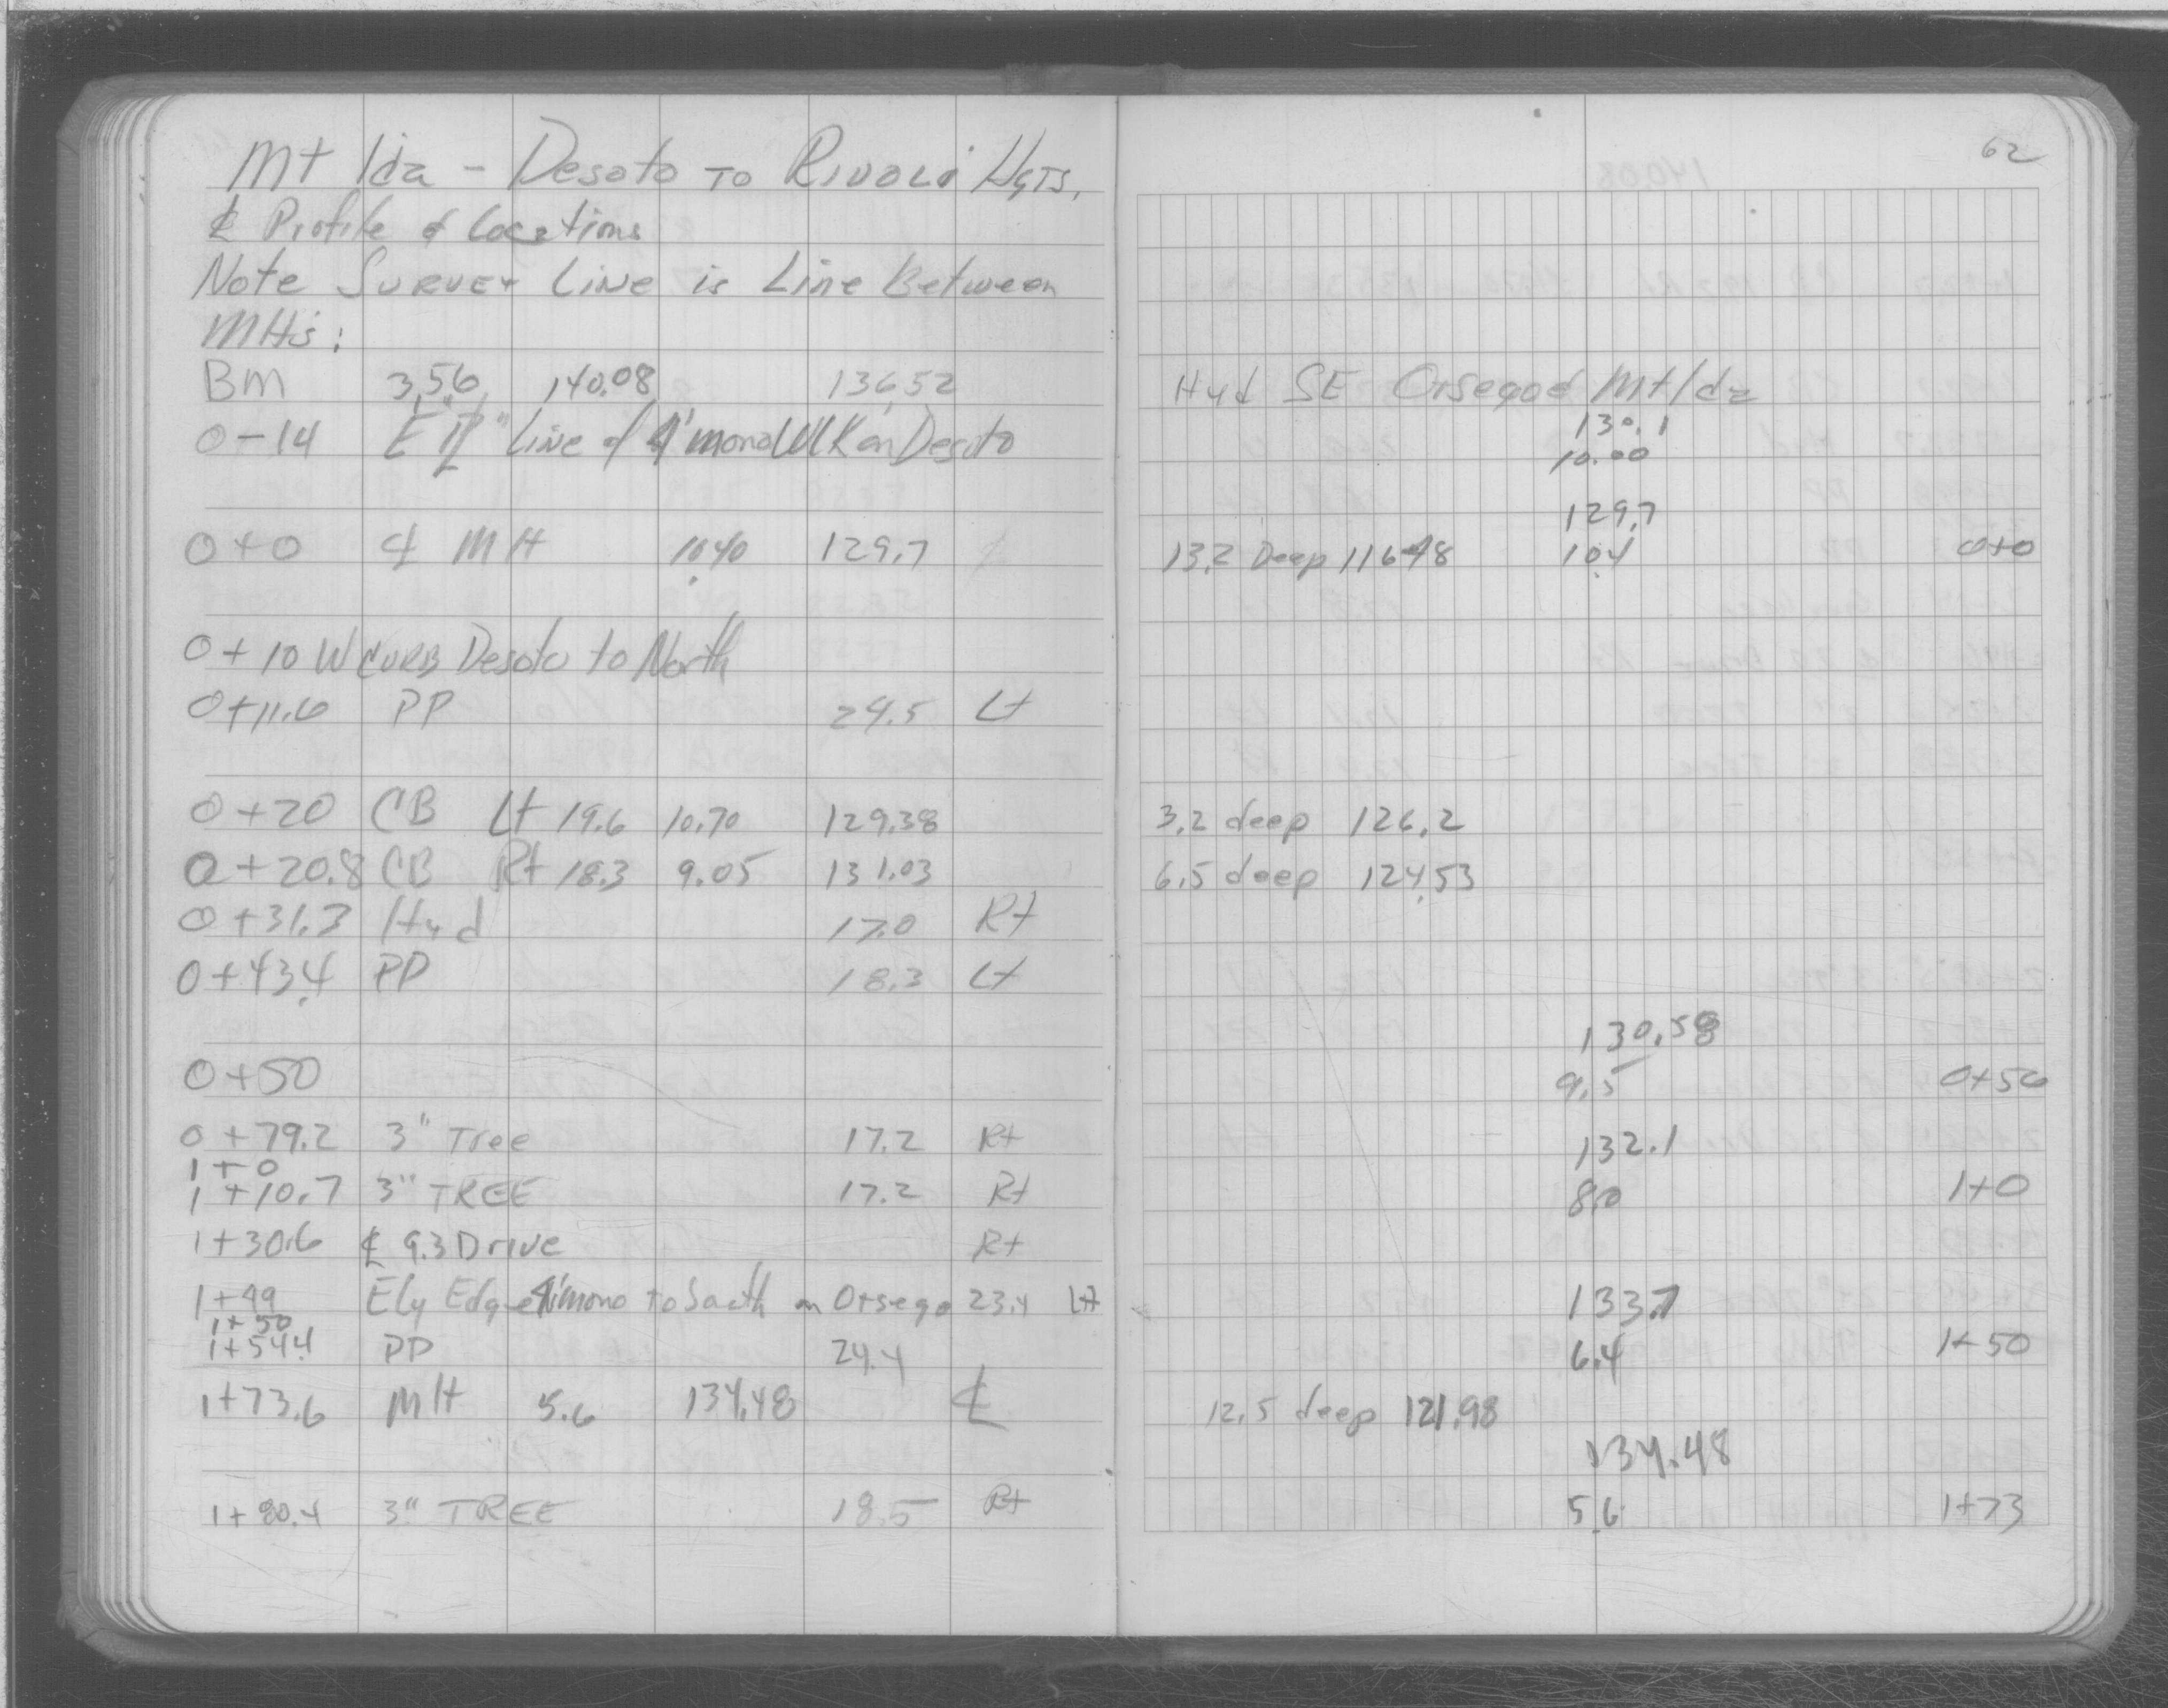 62
Mt Ida - Desoto TO RIVOLI HGTS.
℄ Profile & Locations
Note SURVEY LINE is Line Between
MHs:
BM 3.56 140.08 136.52 Hyd SE Otsego & Mt Ida
130.1
0-14 E "PL" Line of 4' mono WK on Desoto 10.00
129.7
0+0 ℄ MH 10.40 129.7 13.2 Deep 116.48 10.4 0+0
0+10 W CURB Desoto to North
0+11.6 PP 24.5 Lt
0+20 CB Lt 19.6 10.70 129.38 3.2 deep 126.2
0+20.8 CB Rt 18.3 9.05 131.03 6.5 deep 124.53
0+31.3 Hyd 17.0 Rt
0+43.4 PP 18.3 Lt
130.58
0+50 9.5 0+50
0+79.2 3" Tree 17.2 Rt 132.1
1+0
1+10.7 3" TREE 17.2 Rt 8.0 1+0
1+30.6 ℄ 9.3 Drive Rt
1+49 Ely Edge 4' mono to South on Otsego 23.4 Lt 133.7
1+50
1+54.4 PP 24.4 6.4 1+50
1+73.6 MH 5.6 134.48 ℄ 12.5 deep 121.98
134.48
1+80.4 3" TREE 18.5 Rt 5.6 1+73